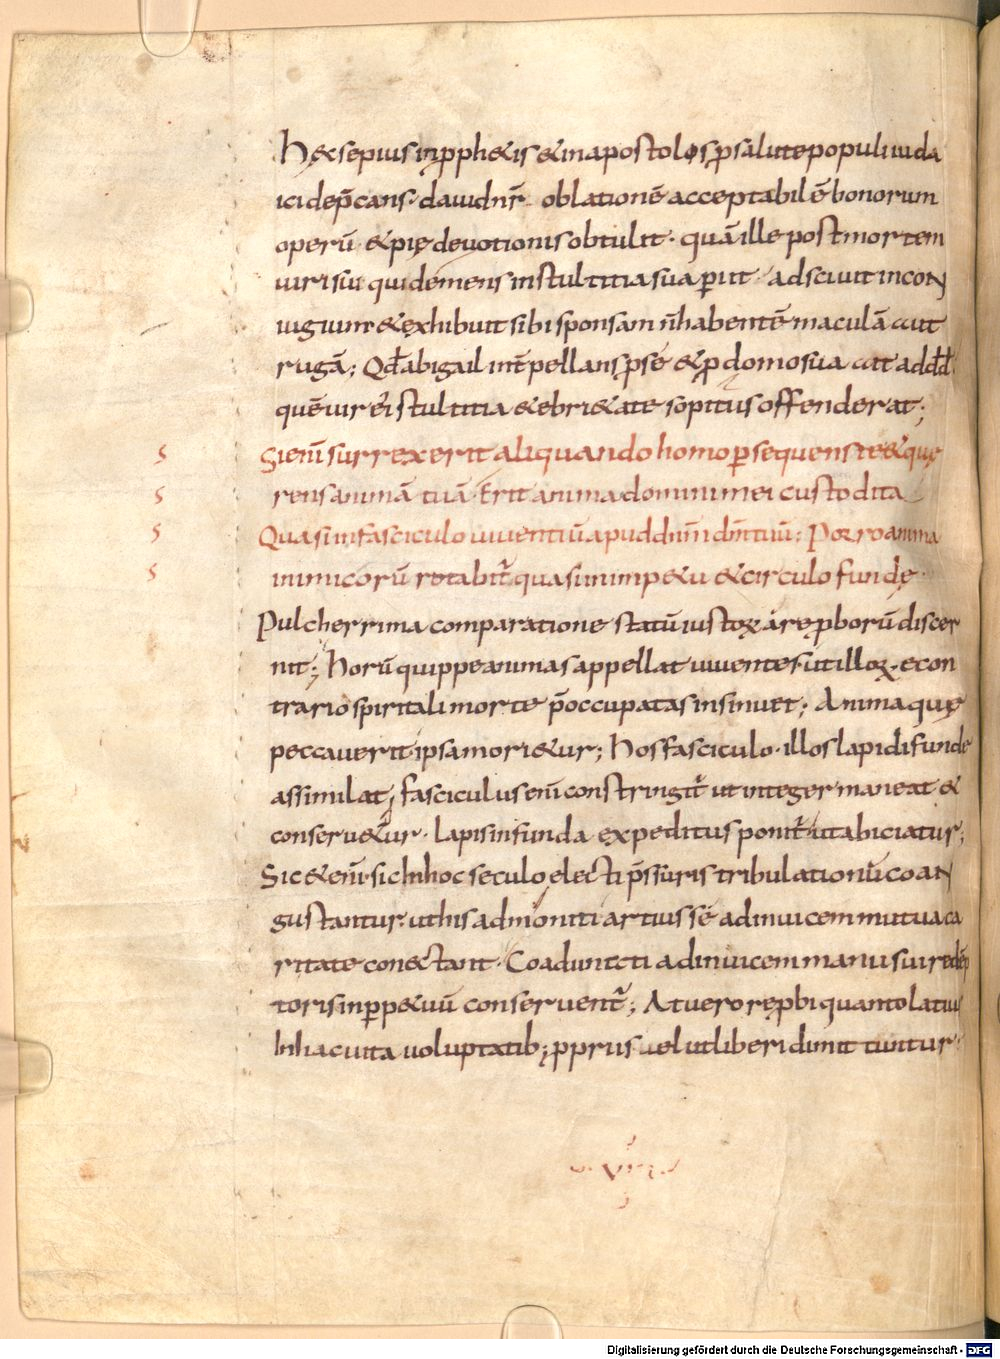 Hęc sepius in ꝓph&is & in apostolos ꝓ salute populi iuda
ici dep̄cans. dauid nr̄ oblationē acceptabilē bonorum
operū & pię deuotionis obtulit. quā ille post mortem
uiri sui qui demens in stultitia sua periit adsciuit in con
iugium & exhibuit sibi sponsam ñ habentē maculā aut
rugā; Qđ abigail int̄pellans ꝓ sé & ꝓ domo sua ait ad đđ.
quē uir ei stultitia & ebri&ate sopitus offenderat;
Si enī surrexerit aliquando homo persequens te & quę
rens animā tuā. Erit anima domini mei custodita
Quasi in fasciculo uiuentiū apud dnm̄ dm̄ tuū; Porro anima
inimicorū rotabit̄ quasi in imp&u & circulo fundę.
Pulcherrima comparatione statū iustoꝝ á reꝓborū discer
nit; Horū quippe animas appellat uiuentes. ut illoꝝ. e con
trario spiritali morte p̄occupatas insinuet; Anima quę
peccauerit ipsa mori&ur; Hos fasciculo. illos lapidi fundę
assimilat; fasciculus enī constringit̄ ut integer maneat &
conseru&ur. lapis in funda expeditus ponit̄ ut abiciatur;
Sic & enī. sic In hoc seculo electi p̄ssuris tribulationū coan
gustantur. ut his admoniti artius sé adinuicem mutua ca
ritate conectant. Coadunati adinuicem manu sui redēp
toris in ꝑp&uū conseruent̄; At uero reꝓbi quanto latius
In hac uita uoluptatib; ꝓpriis uelut liberi dimittuntur.
DFG
Digitalisierung gefördert durch die Deutsche Forschungsgemeinschaft -